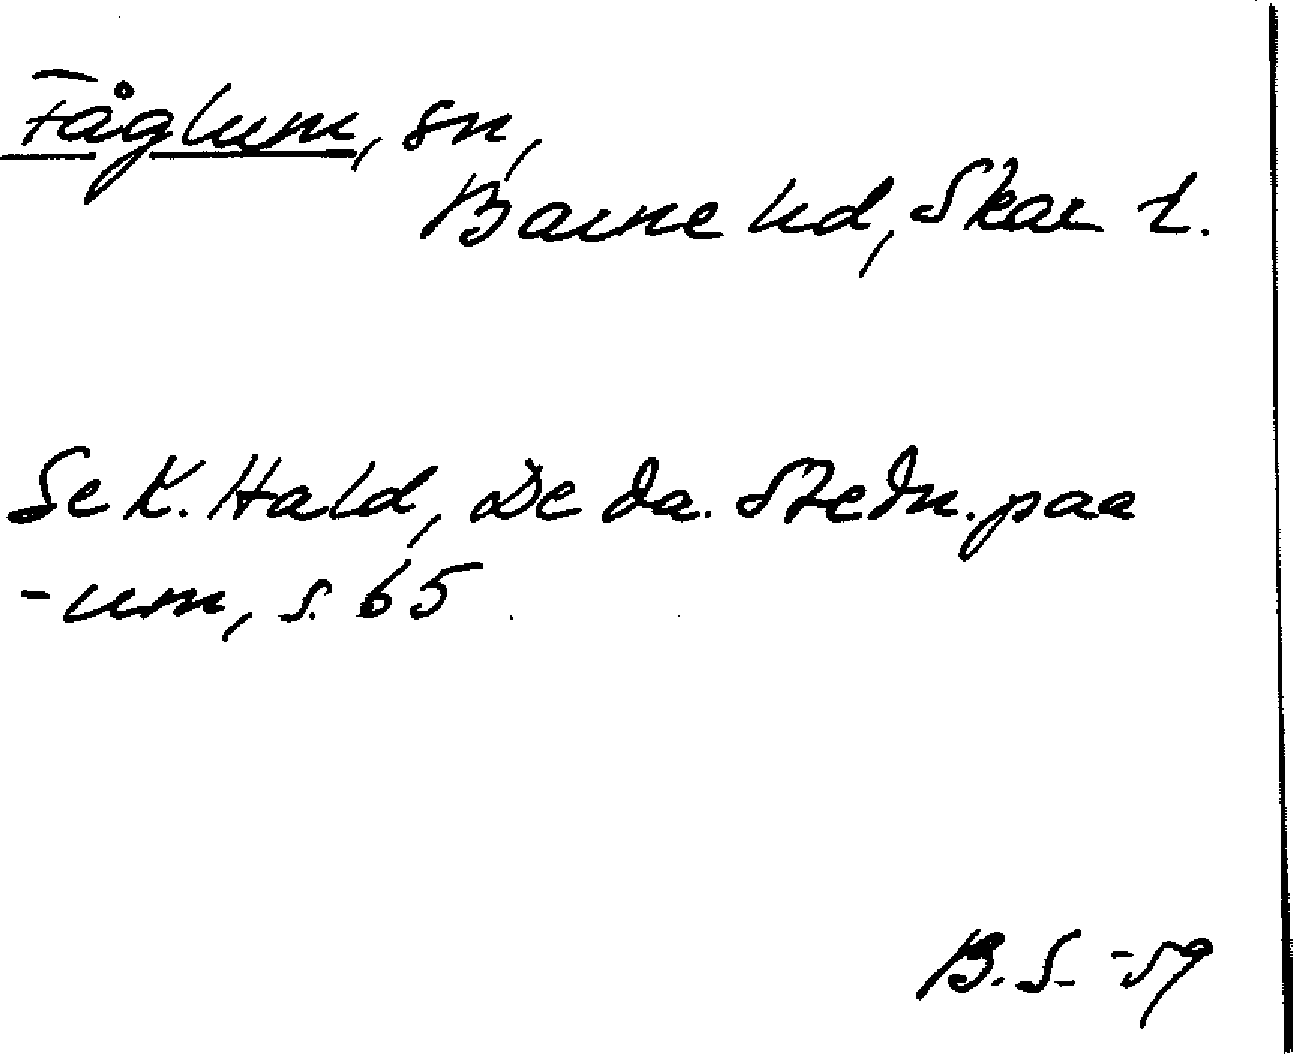 Fåglum, sn,
Barne hd, Skar. l.
Se K. Hald, De da. Stedn. paa
-um, s. 65.
B.S. -59